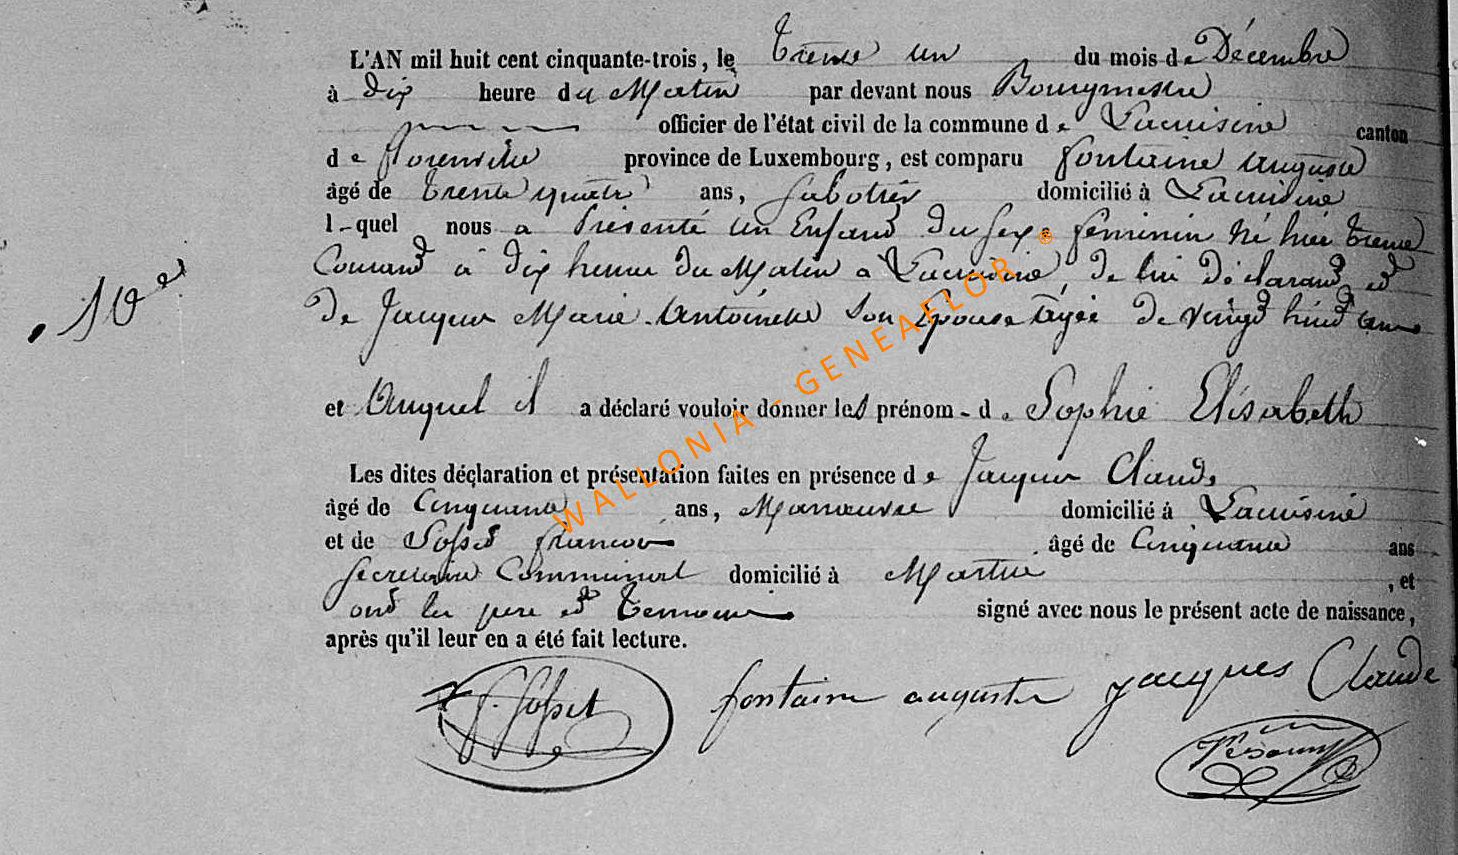 L'AN mil huit cent cinquante-trois, le trente un du mois de Décembre
à dix heure du Matin par devant nous Bourgmestre
officier de l'état civil de la commune de Lacuisine canton
de florenville province de Luxembourg, est comparu fontaine auguste
âgé de trente quatre ans, Sabotier domicilié à Lacuisine
l-quel nous a Présenté un Enfant du sexe féminin Né hier trente
Courant à dix heures du Matin à Lacuisine, de lui Déclarant et
de Jacques Marie Antoinette Son Epouse âgée de vingt huit ans
10e
et Auquel il a déclaré vouloir donner les prénom- de Sophie Elisabeth
Les dites déclaration et présentation faites en présence de Jacques Claude
âgé de Cinquante ans, Manœuvre domicilié à Lacuisine
et de Gosset françois âgé de Cinquante ans
Secretaire Communal domicilié à Martué, et
ont les pere et temoins signé avec nous le présent acte de naissance,
après qu'il leur en a été fait lecture.
f. Gosset fontaine auguste jacques Claude
WALLONIA - GENEAFLOR ©